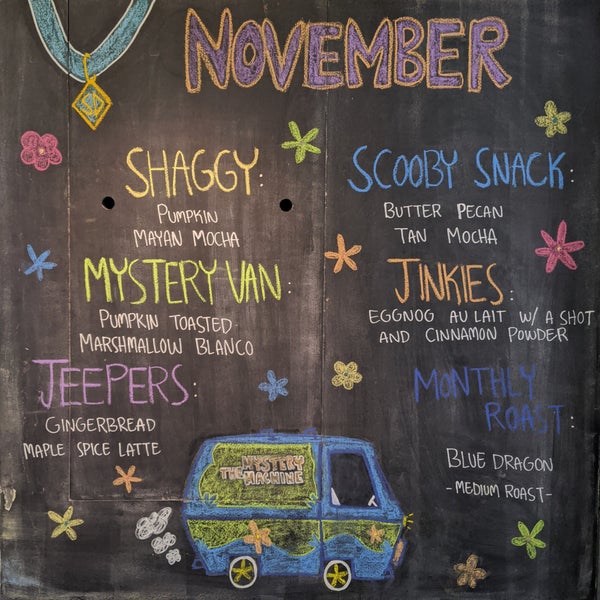 NOVEMBER
SHAGGY:
PUMPKIN
MAYAN MOCHA
SCOOBY SNACK:
BUTTER PECAN
TAN MOCHA
MYSTERY VAN:
PUMPKIN TOASTED
MARSHMALLOW BLANCO
JINKIES:
EGGNOG AU LAIT W/ A SHOT
AND CINNAMON POWDER
JEEPERS:
GINGERBREAD
MAPLE SPICE LATTE
MONTHLY
ROAST:
BLUE DRAGON
-MEDIUM ROAST-
THE MYSTERY
MACHINE
SD